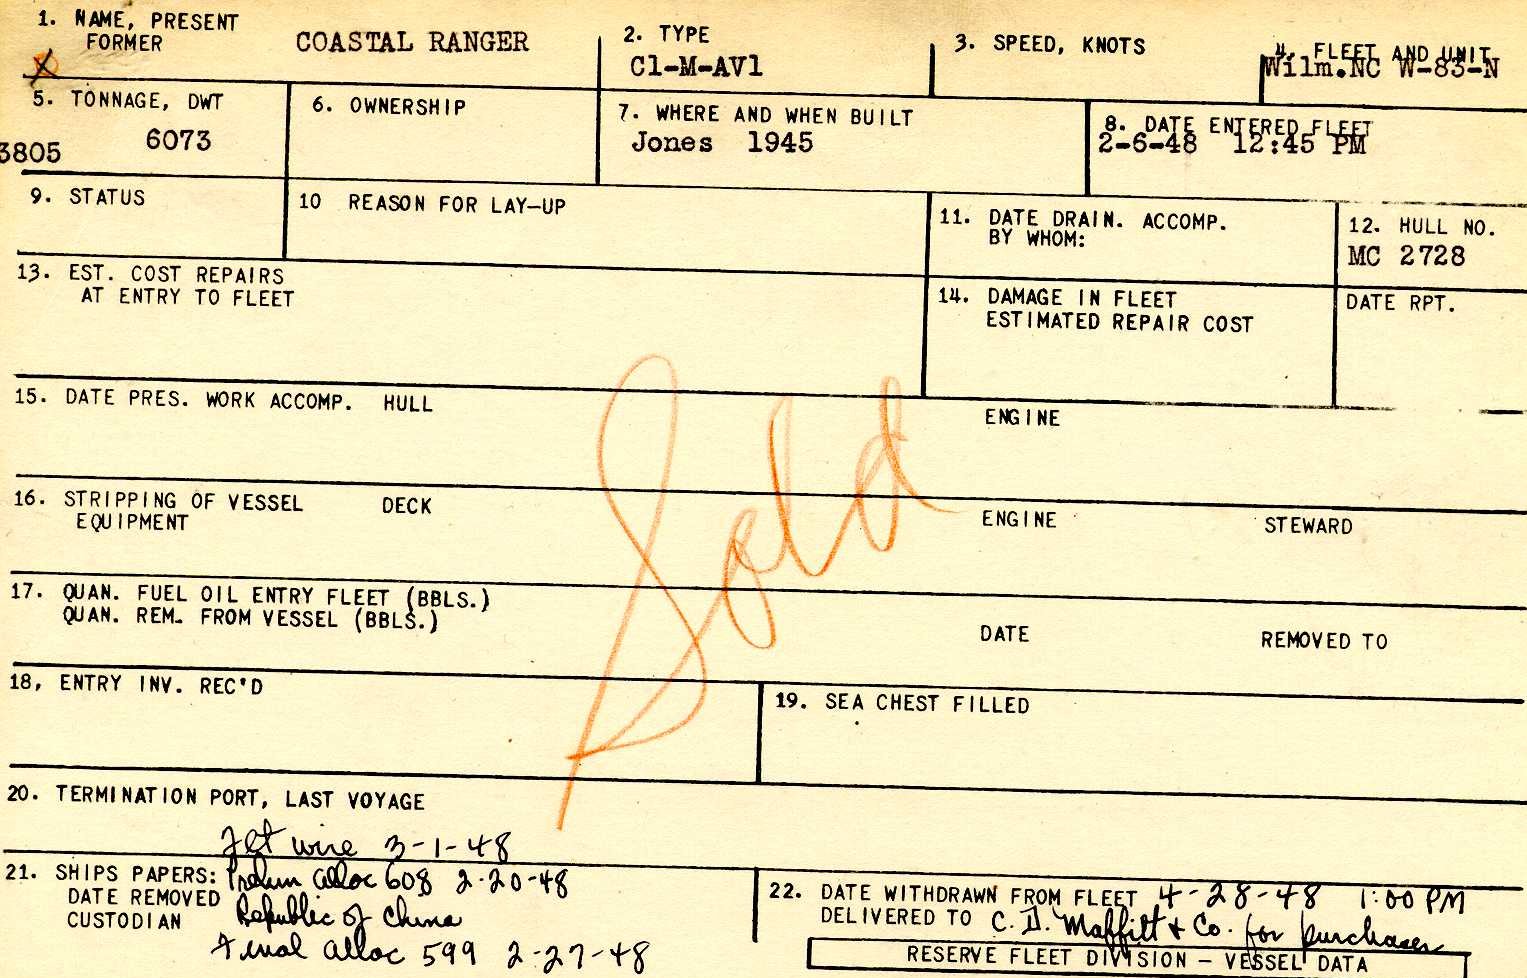 1. NAME, PRESENT
FORMER
COASTAL RANGER
2. TYPE
C1-M-AV1
3. SPEED, KNOTS
4. FLEET AND UNIT
Wilm.NC W-83-N
5. TONNAGE, DWT
6073
3805
6. OWNERSHIP
7. WHERE AND WHEN BUILT
Jones 1945
8. DATE ENTERED FLEET
2-6-48 12:45 PM
9. STATUS
10 REASON FOR LAY-UP
11. DATE DRAIN. ACCOMP.
BY WHOM:
12. HULL NO.
MC 2728
13. EST. COST REPAIRS
AT ENTRY TO FLEET
14. DAMAGE IN FLEET
ESTIMATED REPAIR COST
DATE RPT.
15. DATE PRES. WORK ACCOMP. HULL
ENGINE
Sold
16. STRIPPING OF VESSEL DECK
EQUIPMENT
ENGINE
STEWARD
17. QUAN. FUEL OIL ENTRY FLEET (BBLS.)
QUAN. REM. FROM VESSEL (BBLS.)
DATE
REMOVED TO
18, ENTRY INV. REC'D
19. SEA CHEST FILLED
20. TERMINATION PORT, LAST VOYAGE
Flt wire 3-1-48
21. SHIPS PAPERS: Prelim alloc 608 2-20-48
DATE REMOVED
CUSTODIAN
Republic of China
Final alloc 599 2-27-48
22. DATE WITHDRAWN FROM FLEET 4-28-48 1:00 PM
DELIVERED TO C. D. Maffitt & Co. for purchaser
RESERVE FLEET DIVISION - VESSEL DATA